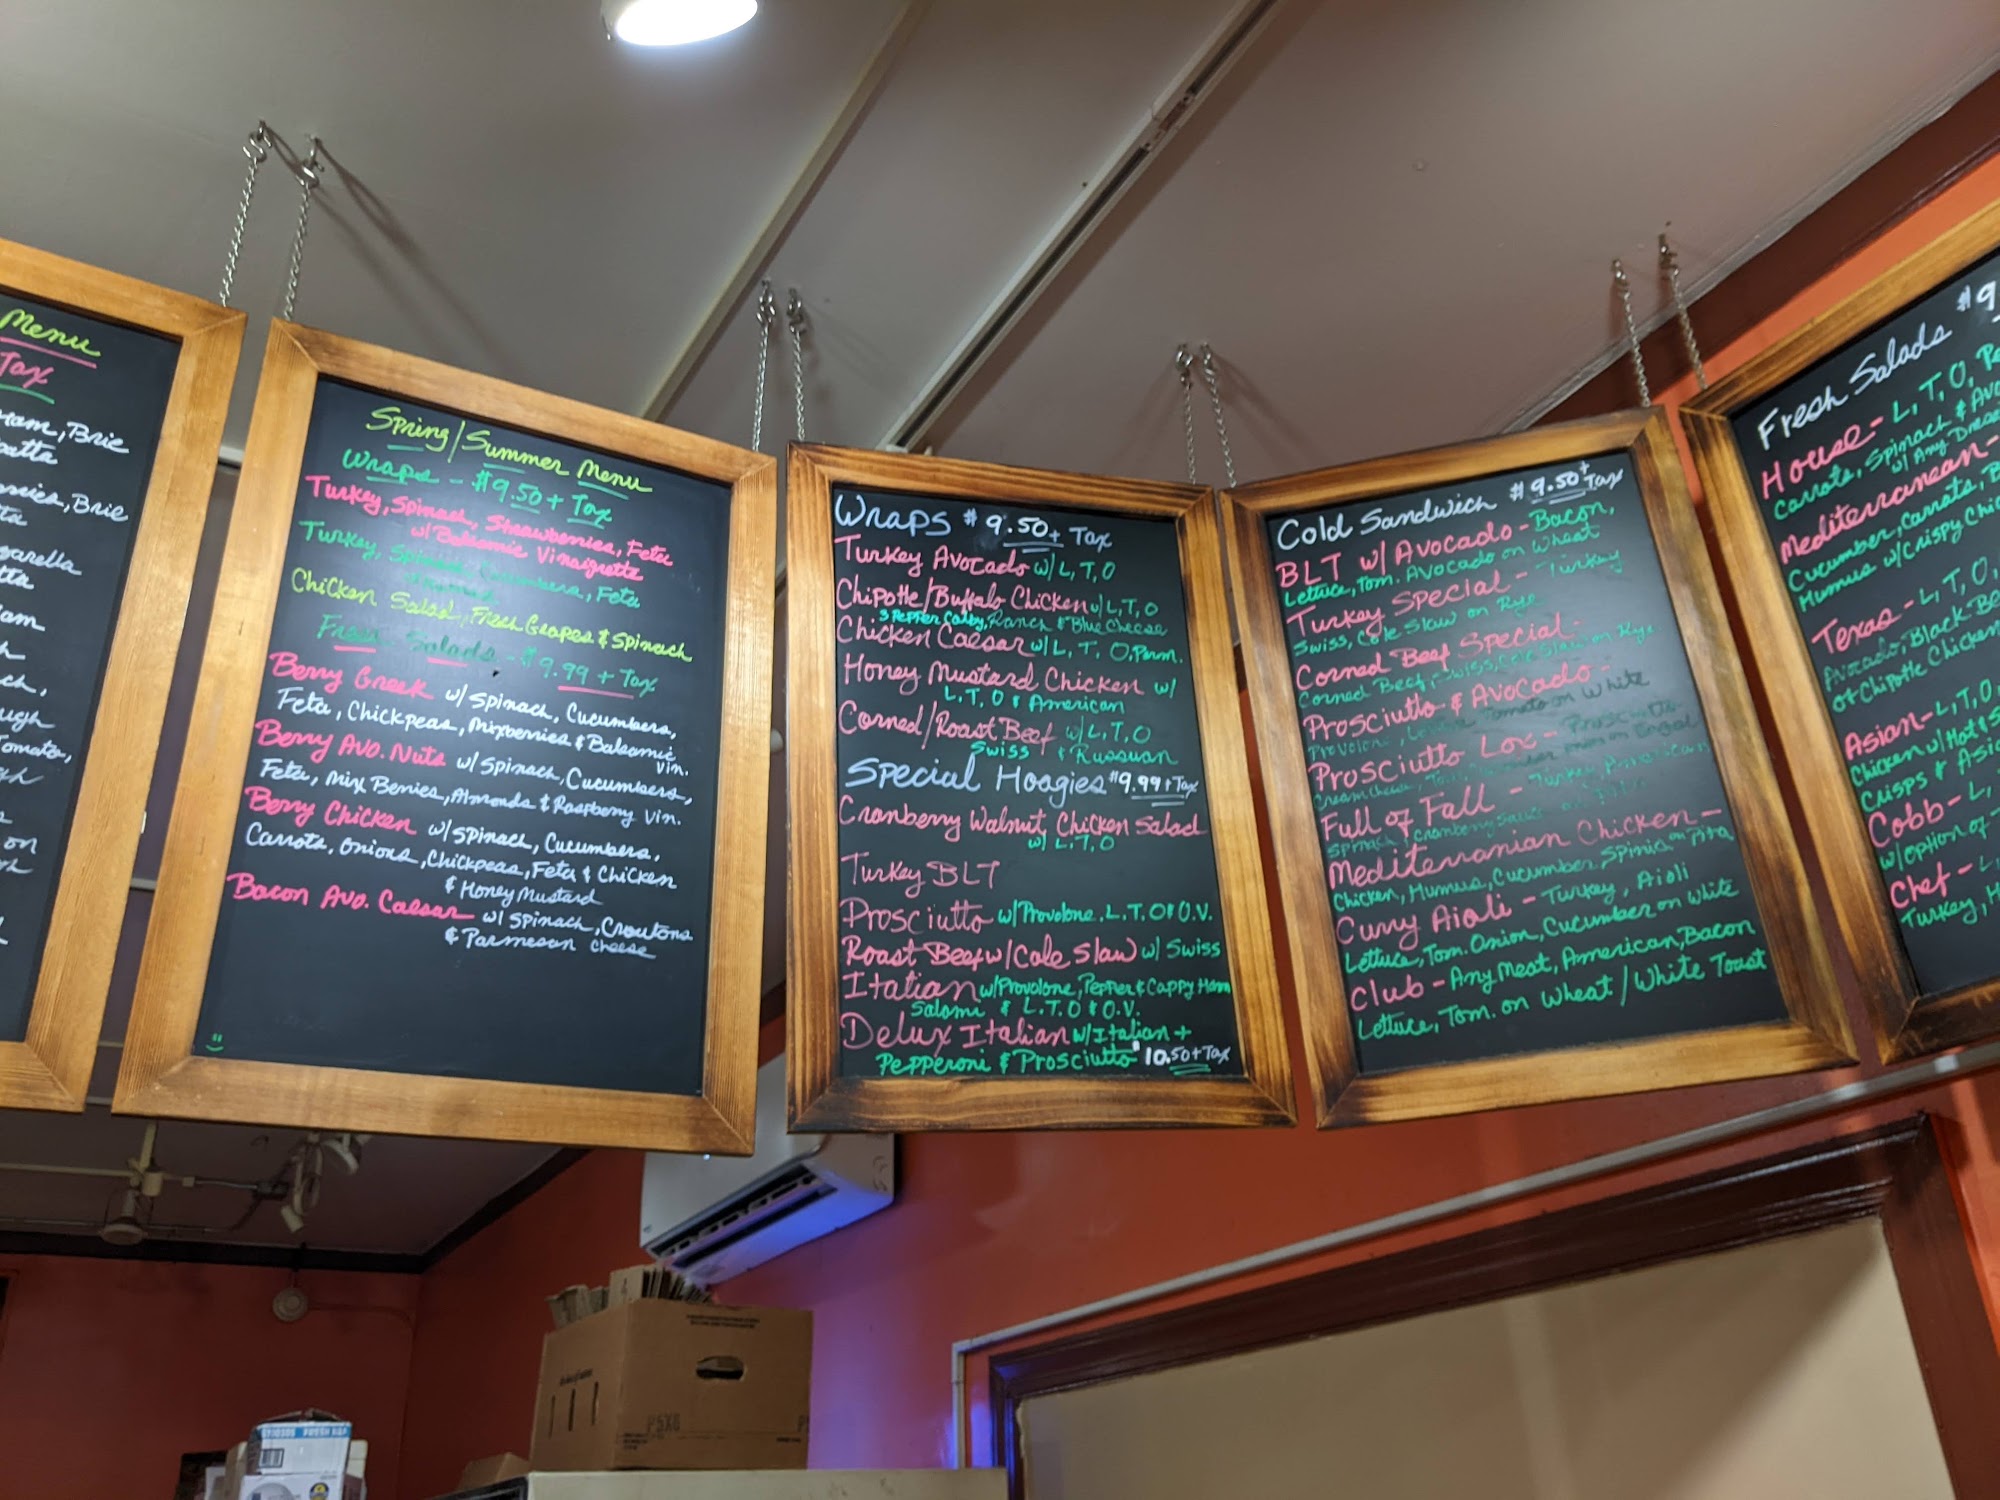 Menu
Tax
Ham, Brie
Brie
ta
arella
tta
am
ch,
ugh
Tomato,
on
Spring/Summer Menu
Wraps - $9.50 + Tax
Turkey, Spinach, Strawberries, Feta
w/Balsamic Vinaigrette
Turkey, Spinach, Cucumbers, Feta
Chicken Salad, Fresh Grapes & Spinach
Fresh Salads - $9.99 + Tax
Berry Greek w/ Spinach, Cucumbers,
Feta, Chickpeas, Mixberries & Balsamic
vin.
Berry Avo. Nuts w/ Spinach, Cucumbers,
Feta, Mix Berries, Almonds & Raspberry Vin.
Berry Chicken w/ Spinach, Cucumbers,
Carrots, Onions, Chickpeas, Feta & Chicken
& Honey Mustard
Bacon Avo. Caesar w/ Spinach, Croutons
& Parmesan cheese
Wraps $9.50+ Tax
Turkey Avocado w/ L, T, O
Chipotle/Buffalo Chicken w/ L, T, O
3 Pepper Colby, Ranch & Blue Cheese
Chicken Caesar w/ L, T, O, Parm.
Honey Mustard Chicken w/
L.T.O & American
Corned/Roast Beef w/ L, T, O
Swiss & Russuan
Special Hoagies $9.99+Tax
Cranberry Walnut Chicken Salad
w/ L.T.O
Turkey BLT
Prosciutto w/Provolone, L.T.O & O.V.
Roast Beef w/ Cole Slaw w/ Swiss
Italian w/Provolone, Pepper & Cappy Ham
Salami & L.T.O & O.V.
Delux Italian w/Italian +
Pepperoni & Prosciutto $10.50+Tax
Cold Sandwich $9.50+ Tax
BLT w/ Avocado - Bacon,
Lettuce, Tom. Avocado on Wheat
Turkey Special - Turkey
Swiss, Cole Slaw on Rye
Corned Beef Special -
Corned Beef, Swiss, Cole Slaw on Rye
Prosciutto & Avocado -
Provolone, Lettuce Tomato on White
Prosciutto Lox - Prosciutto
Cream cheese, Tom. on
Full of Fall - Turkey, American
Spinach, Cranberry Sauce on Pita
Mediterranian Chicken -
Chicken, Humus, Cucumber Spinich on Pita
Curry Aioli - Turkey, Aioli
Lettuce, Tom. Onion, Cucumber on White
Club - Any Meat, American, Bacon
Lettuce, Tom. on Wheat / White Toast
Fresh Salads $9
House - L, T, O, Pe
Carrots, Spinach & Avo
w/ Any Dres
Mediterranean -
Cucumber, Carrots, B
Humus w/Crispy Chic
Texas - L, T, O,
Avocado, Black Be
of Chipotle Chicken
Asian - L, T, O,
Chicken w/ Hot & S
Crisps & Asia
Cobb - L,
w/option of T
Chef - L,
Turkey, H